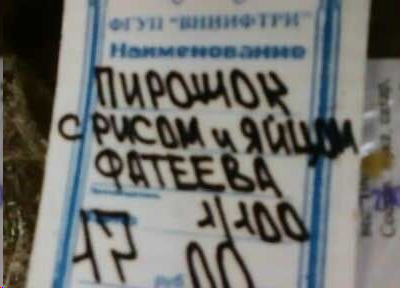 ФГУП "ВНИИФТРИ"
Наименование
ПИРОЖОК
С РИСОМ И ЯЙЦОМ
ФАТЕЕВА
1/100
17 руб 00